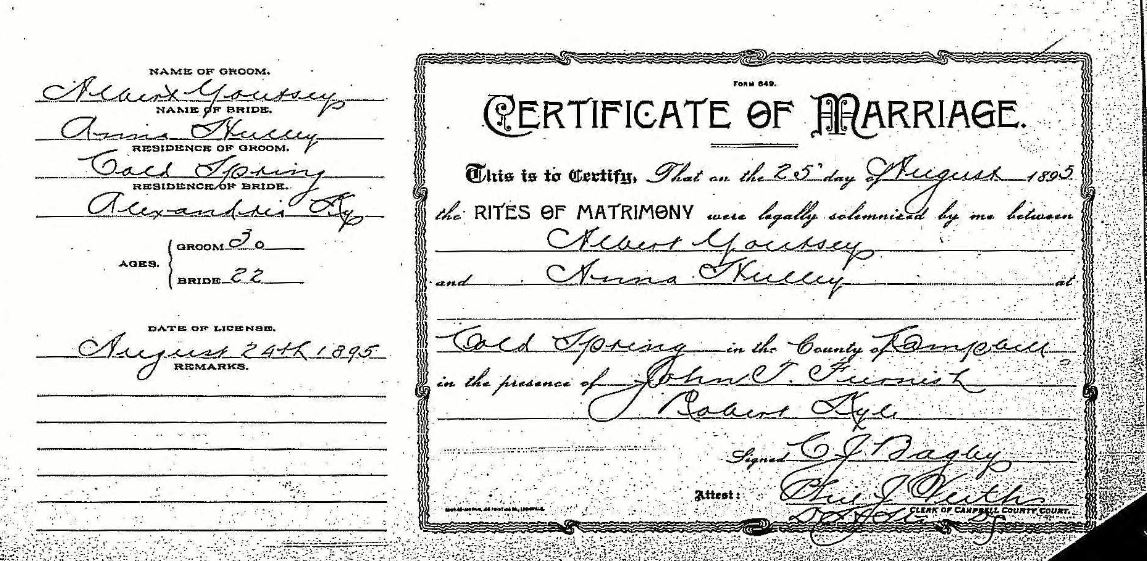 NAME OF GROOM.
Albert Youtsey
NAME OF BRIDE.
Anna Hulley
RESIDENCE OF GROOM.
Cold Spring
RESIDENCE OF BRIDE.
Alexandria Ky
AGES.
GROOM 30
BRIDE 22
DATE OF LICENSE.
August 24th 1895
REMARKS.
FORM 649.
CERTIFICATE OF MARRIAGE.
This is to Certify, That on the 25 day of August 1895
the RITES OF MATRIMONY were legally solemnized by me between
Albert Youtsey
and Anna Hulley at
Cold Spring in the County of Campbell
in the presence of John T. Furnish
Robert Kyle
Signed C J Bagby
Attest: Phil J Veith
CLERK OF CAMPBELL COUNTY COURT.